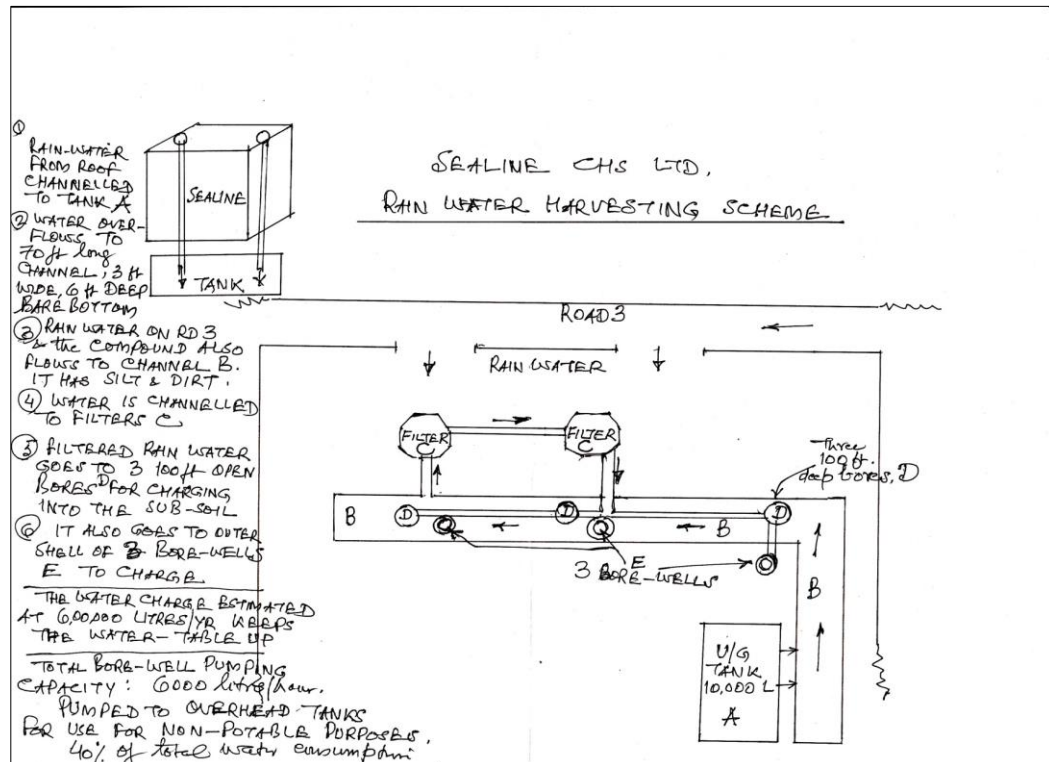 SEALINE CHS LTD.
RAIN WATER HARVESTING SCHEME
① RAIN-WATER
FROM ROOF
CHANNELLED
TO TANK A
② WATER OVER-
FLOWS TO
70 ft long
CHANNEL, 3 ft
WIDE, 6 ft DEEP
BARE BOTTOM
③ RAIN WATER ON RD 3
& the COMPOUND ALSO
FLOWS TO CHANNEL B.
IT HAS SILT & DIRT.
④ WATER IS CHANNELLED
TO FILTERS C
⑤ FILTERED RAIN WATER
GOES TO 3 100ft OPEN
BORES D FOR CHARGING
INTO THE SUB-SOIL
⑥ IT ALSO GOES TO OUTER
SHELL OF 3 BORE-WELLS
E TO CHARGE
THE WATER CHARGE ESTIMATED
AT 6,00,000 LITRES/YR KEEPS
THE WATER-TABLE UP
TOTAL BORE-WELL PUMPING
CAPACITY: 6000 litre/hour.
PUMPED TO OVERHEAD TANKS
FOR USE FOR NON-POTABLE PURPOSES.
40% of total water consumption
SEALINE
TANK
ROAD 3
RAIN WATER
FILTER
C
FILTER
C
Three
100 ft.
deep bores, D
B
D
D
D
B
E
3 BORE-WELLS
B
U/G
TANK
10,000 L
A